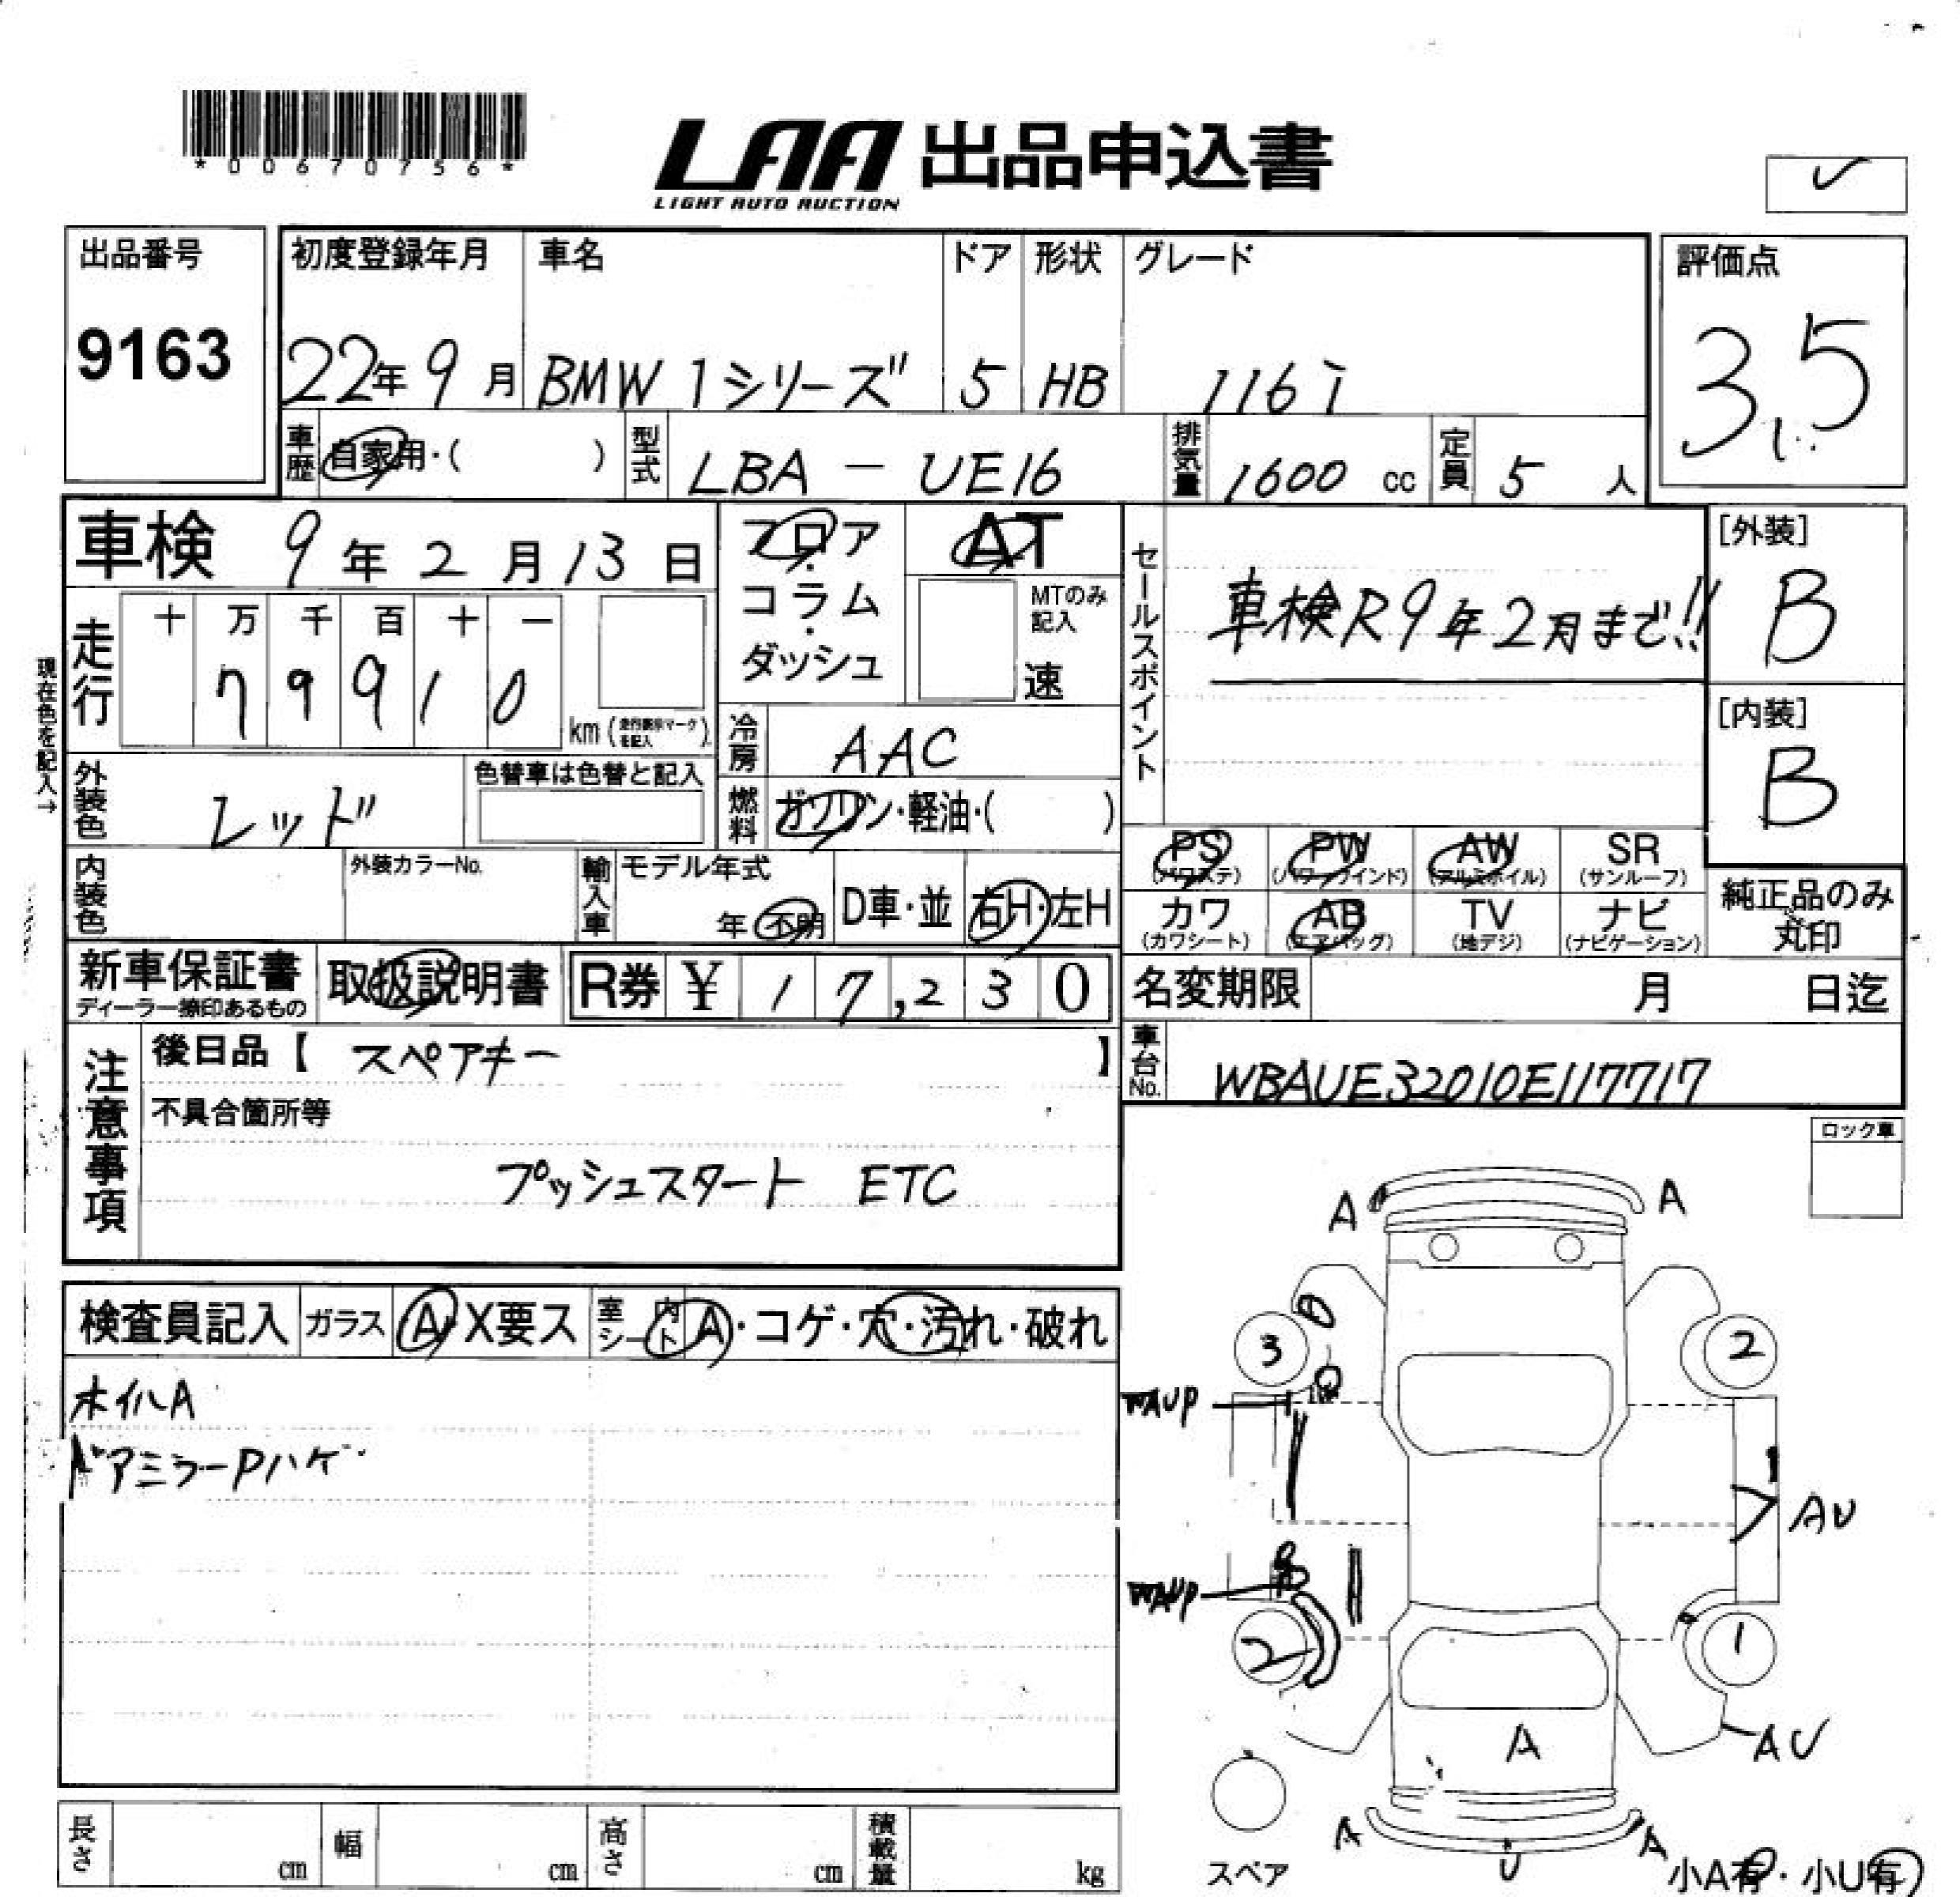 *00670756*
LAA 出品申込書
LIGHT AUTO AUCTION
出品番号
9163
初度登録年月
22年9月
車名
BMW 1シリーズ
ドア
5
形状
HB
グレード
116i
評価点
3.5
車歴
自家用・( )
型式
LBA - UE16
排気量
1600 cc
定員
5 人
車検 9年2月13日
フロア・コラム・ダッシュ
AT
MTのみ記入
速
セールスポイント
車検R9年2月まで!!
[外装]
B
[内装]
B
現在色を記入→
走行
十 万 千 百 十 一
7 9 9 1 0
km (走行表示マークを記入)
冷房
AAC
外装色
レッド
色替車は色替と記入
燃料
ガソリン・軽油・( )
内装色
外装カラーNo.
輸入車
モデル年式
年 不明
D車・並
右H・左H
PS (パワステ)
PW (パワーウインド)
AW (アルミホイル)
SR (サンルーフ)
カワ (カワシート)
AB (エアバッグ)
TV (地デジ)
ナビ (ナビゲーション)
純正品のみ丸印
新車保証書
ディーラー捺印あるもの
取扱説明書
R券 ¥ 1 7,2 3 0
名変期限 月 日迄
注意事項
後日品【 スペアキー 】
不具合箇所等
プッシュスタート ETC
車台No.
WBAUE32010E117717
ロック車
検査員記入
ガラス
A・X要ス
室内シート
A・コゲ・穴・汚れ・破れ
ホイルA
ドアミラーPハゲ
A A
3 2
WAUP
AU
WAUP
2 1
AU
A
A U A
スペア
小A有・小U有
長さ cm
幅 cm
高さ cm
積載量 kg